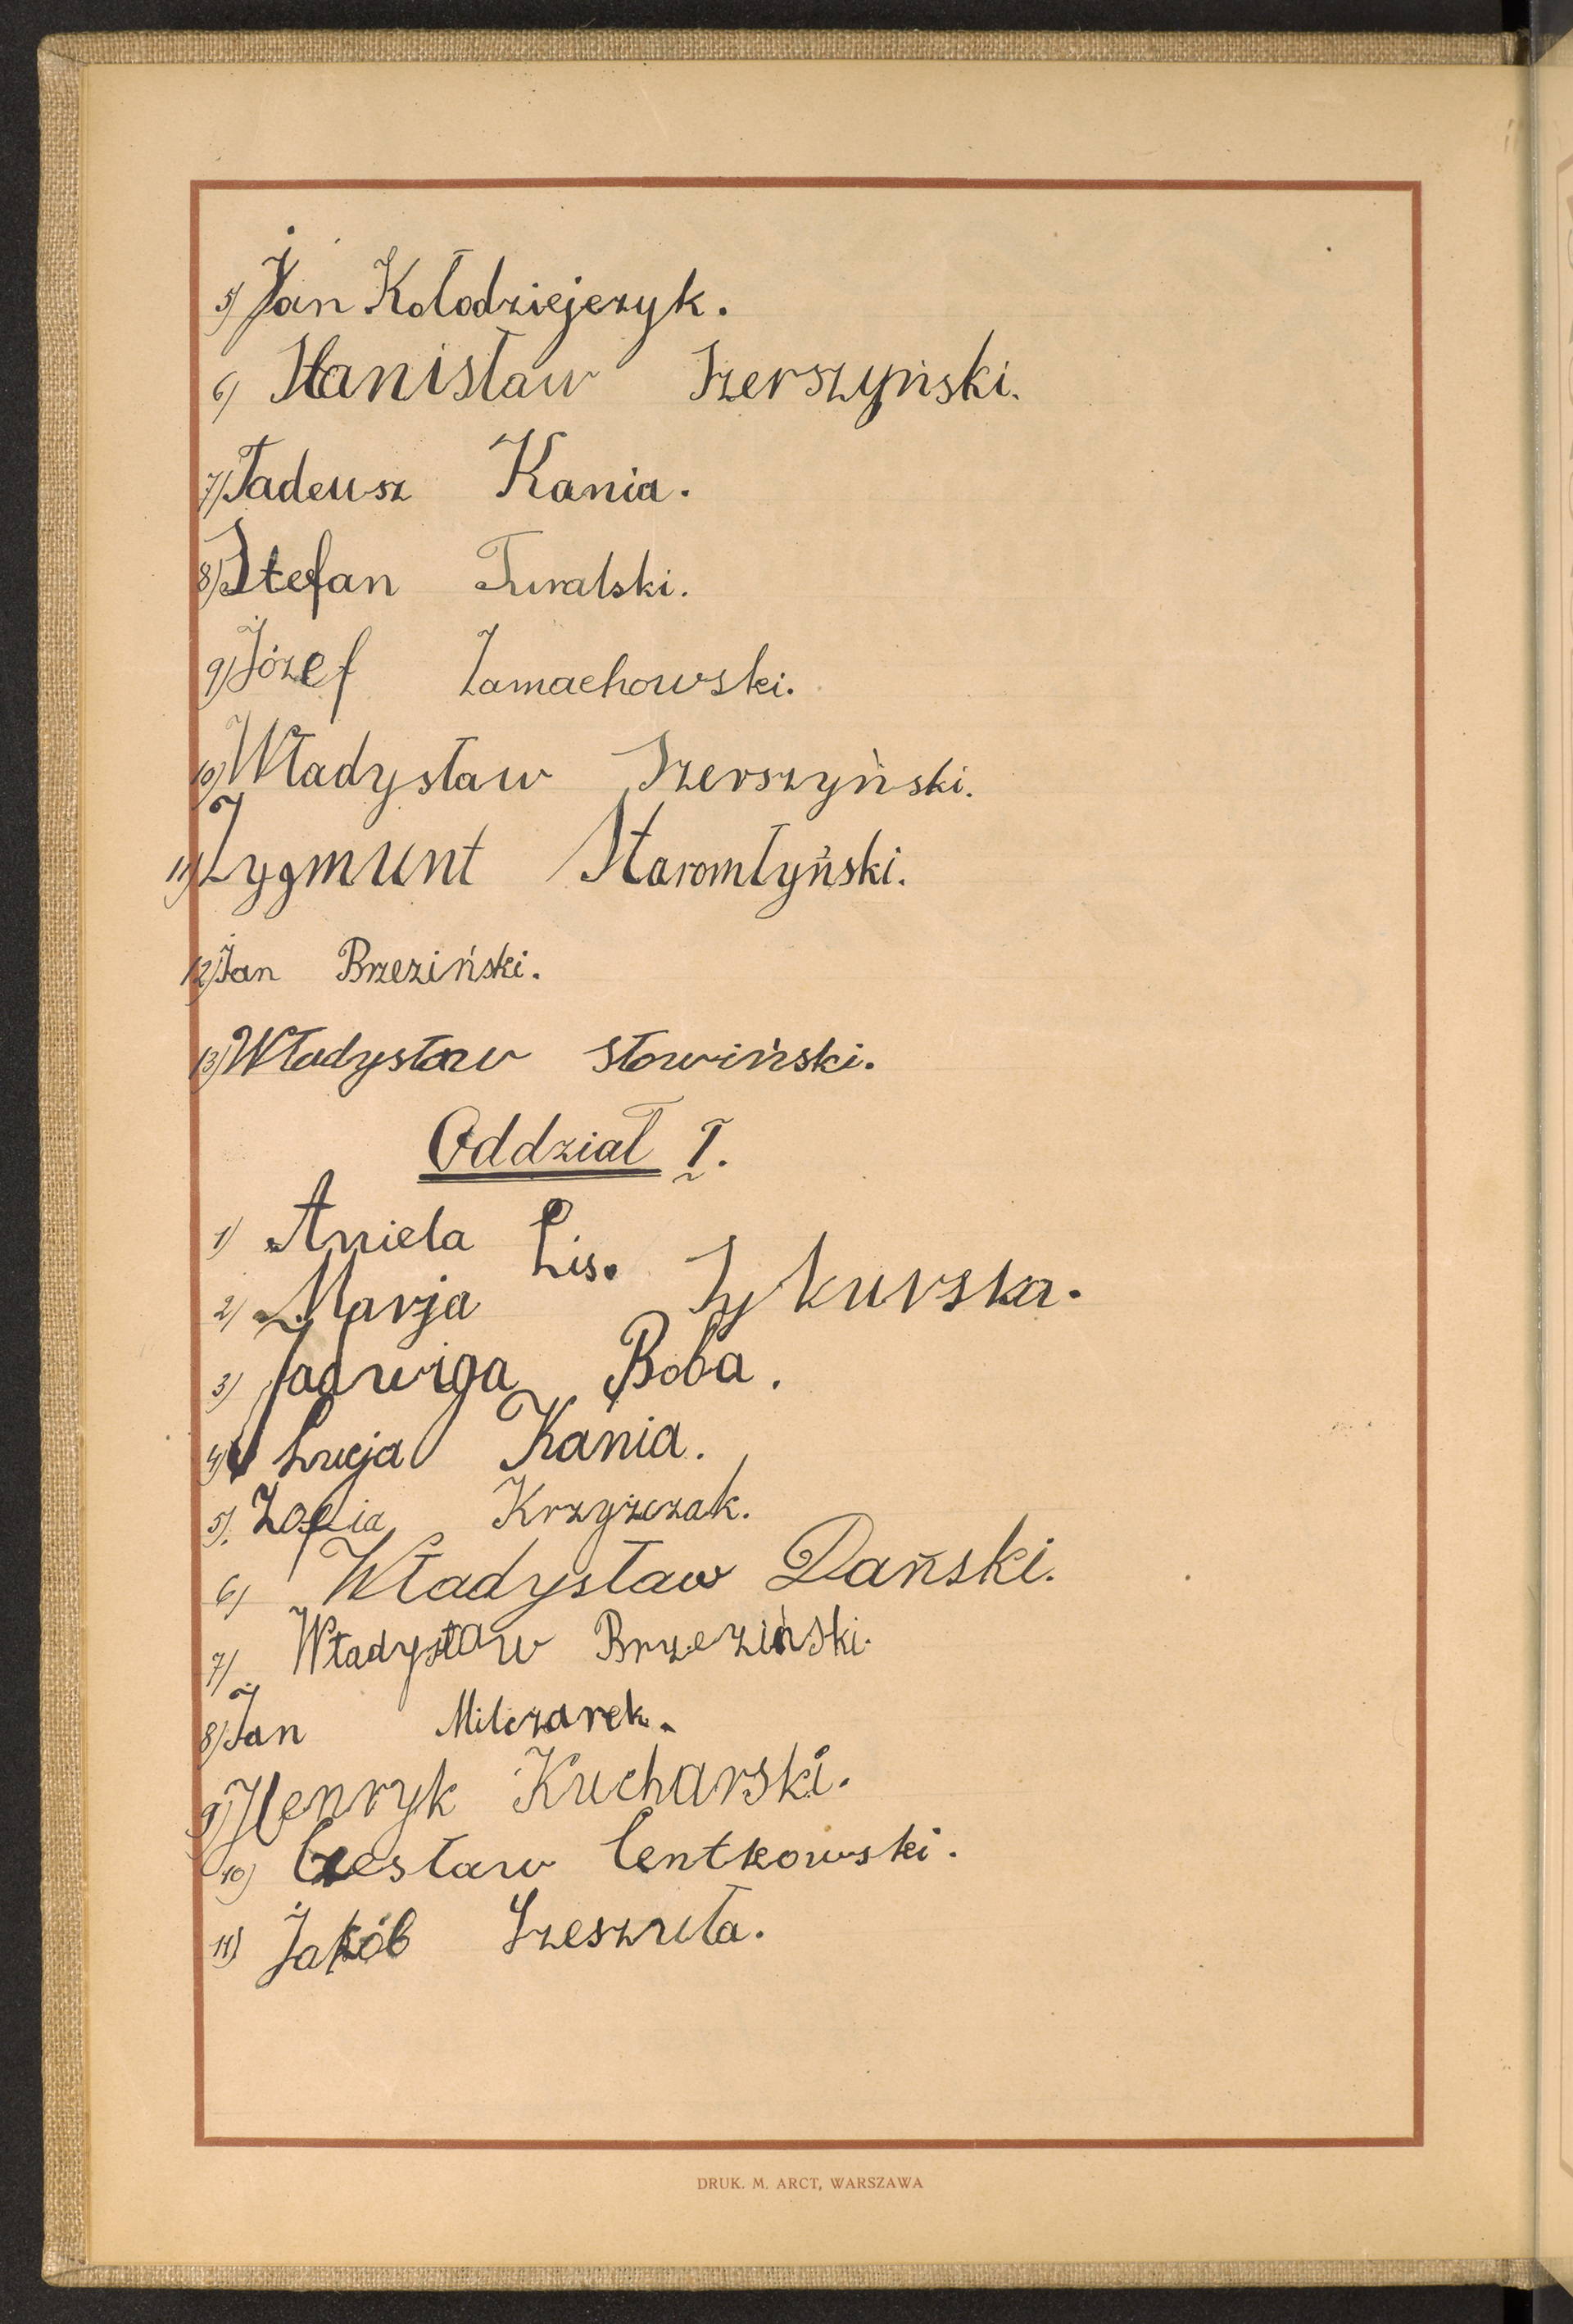 5) Jan Kołodziejczyk.
6) Stanisław Szerszyński.
7) Tadeusz Kania.
8) Stefan Turalski.
9) Józef Zamachowski.
10) Władysław Szerszyński.
11) Zygmunt Staromłyński.
12) Jan Brzeziński.
13) Władysław Słowiński.
Oddział I.
1) Aniela Lis.
2) Marja Sykurska.
3) Jadwiga Boba.
4) Łucja Kania.
5). Zofia Krzyżczak.
6) Władysław Dański.
7) Władysław Brzeziński.
8) Jan Milczarek.
9) Henryk Kucharski.
10) Czesław Centkowski.
11) Jakób Szeszuła.
DRUK. M. ARCT, WARSZAWA